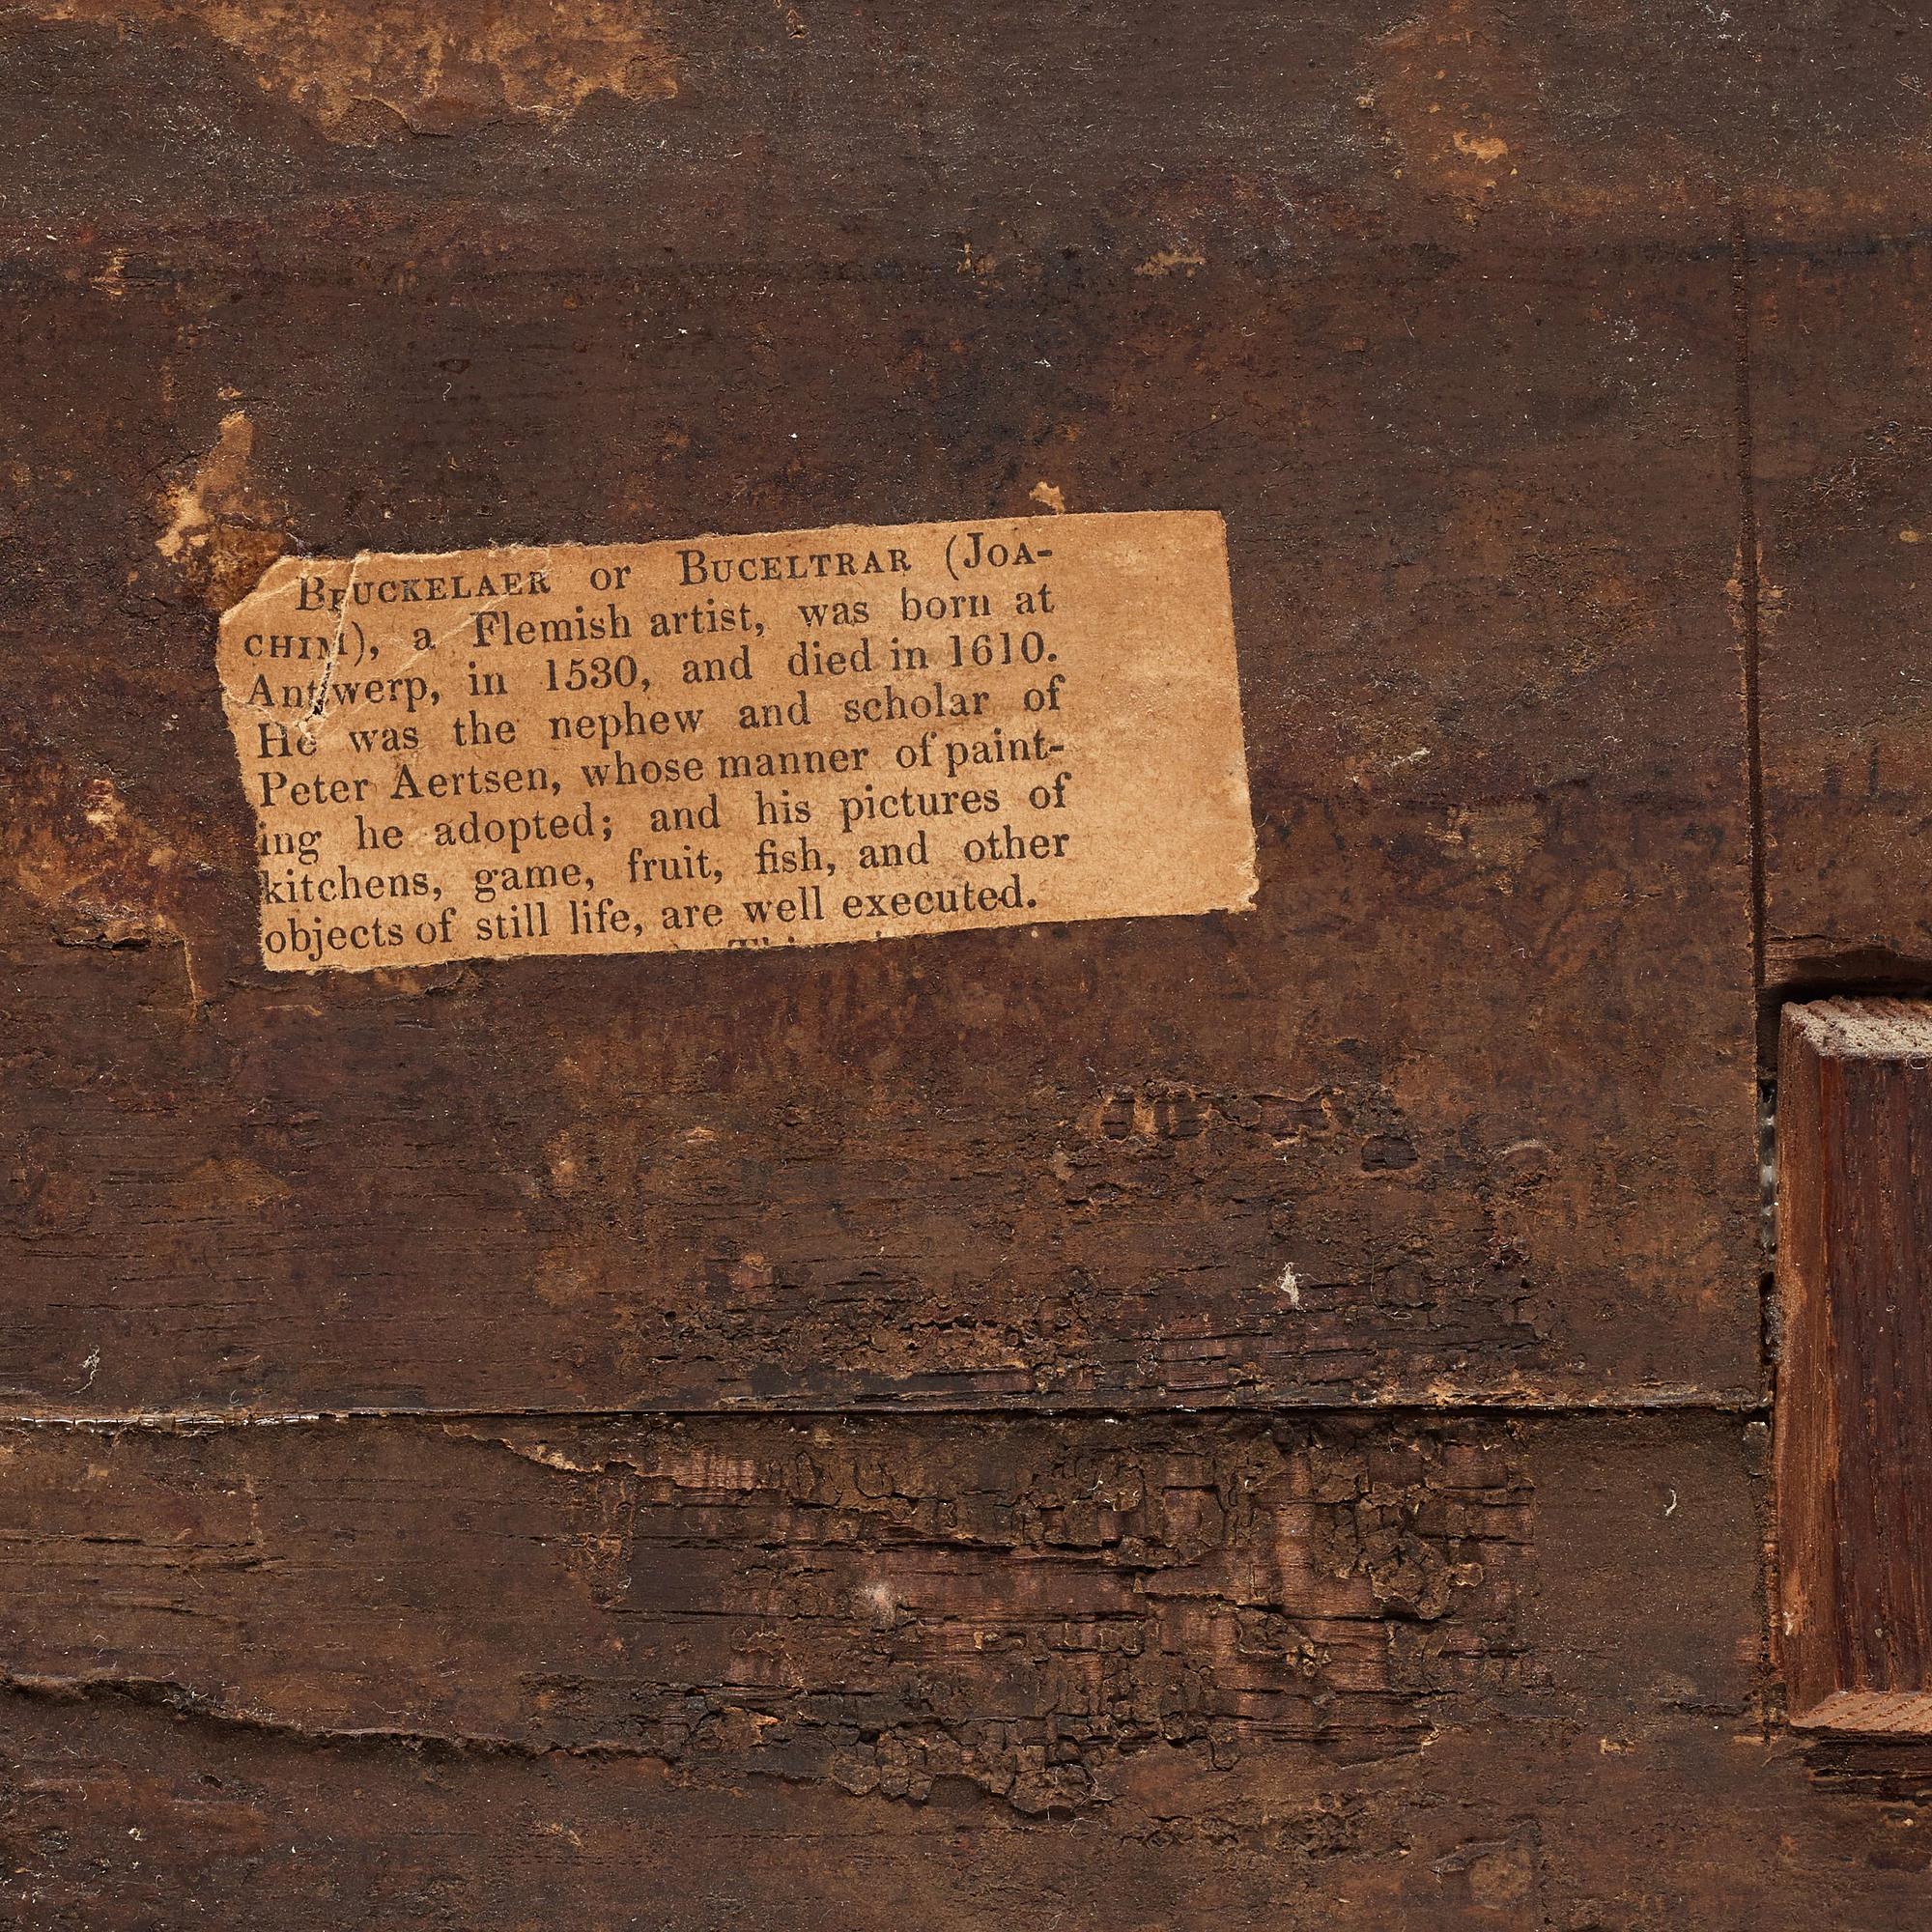 BRUCKELAER or BUCELTRAR (JOA-
CHIM), a Flemish artist, was born at
Antwerp, in 1530, and died in 1610.
He was the nephew and scholar of
Peter Aertsen, whose manner of paint-
ing he adopted; and his pictures of
kitchens, game, fruit, fish, and other
objects of still life, are well executed.